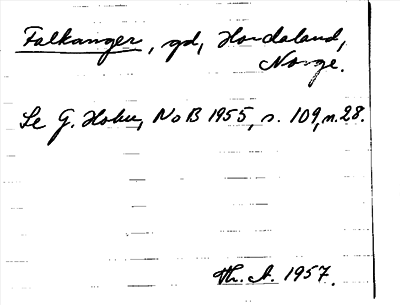 Falkanger, gd, Hordaland,
Norge.
Se G. Holm, NoB 1955, s. 109, n. 28.
Th. A. 1957.